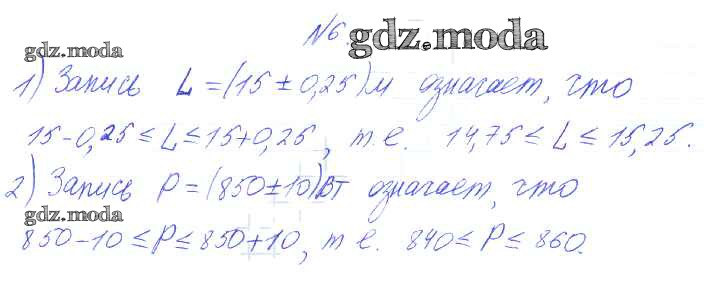 №6.
gdz.moda
gdz.moda
1) Запись L=(15±0,25)м означает, что
15-0,25≤L≤15+0,25, т.е. 14,75≤L≤15,25.
2) Запись P=(850±10)Вт означает, что
gdz.moda
850-10≤P≤850+10, т.е. 840≤P≤860.